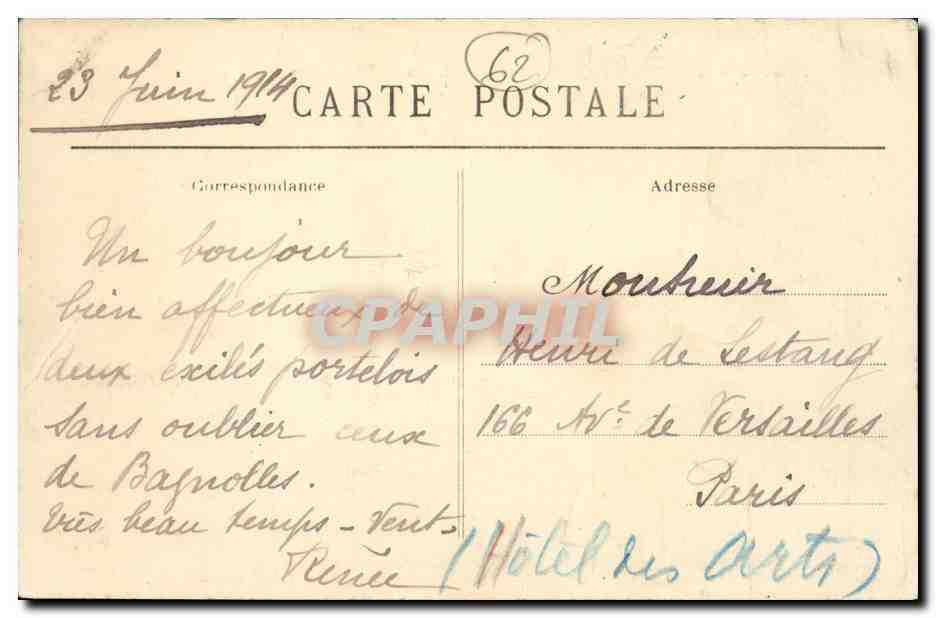 23 Juin 1914
62
CARTE POSTALE
Correspondance
Adresse
Un bonjour
bien affectueux de
deux exilés portelois
sans oublier ceux
de Bagnolles.
très beau temps - Vent -
Renée
Monsieur
Henri de Lestang
166 Av.e de Versailles
Paris
(Hôtel des Arts)
CPAPHIL